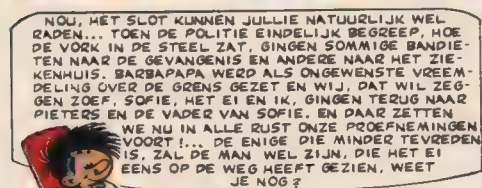 NOU, HET SLOT KUNNEN JULLIE NATUURLIJK WEL
RADEN... TOEN DE POLITIE EINDELIJK BEGREEP, HOE
DE VORK IN DE STEEL ZAT, GINGEN SOMMIGE BANDIE-
TEN NAAR DE GEVANGENIS EN ANDERE NAAR HET ZIE-
KENHUIS. BARBAPAPA WERD ALS ONGEWENSTE VREEM-
DELING OVER DE GRENS GEZET EN WIJ, DAT WIL ZEG-
GEN ZOEF, SOFIE, HET EI EN IK, GINGEN TERUG NAAR
PIETERS EN DE VADER VAN SOFIE. EN DAAR ZETTEN
WE NU IN ALLE RUST ONZE PROEFNEMINGEN
VOORT!... DE ENIGE DIE MINDER TEVREDEN
IS, ZAL DE MAN WEL ZIJN, DIE HET EI
EENS OP DE WEG HEEFT GEZIEN, WEET
JE NOG?